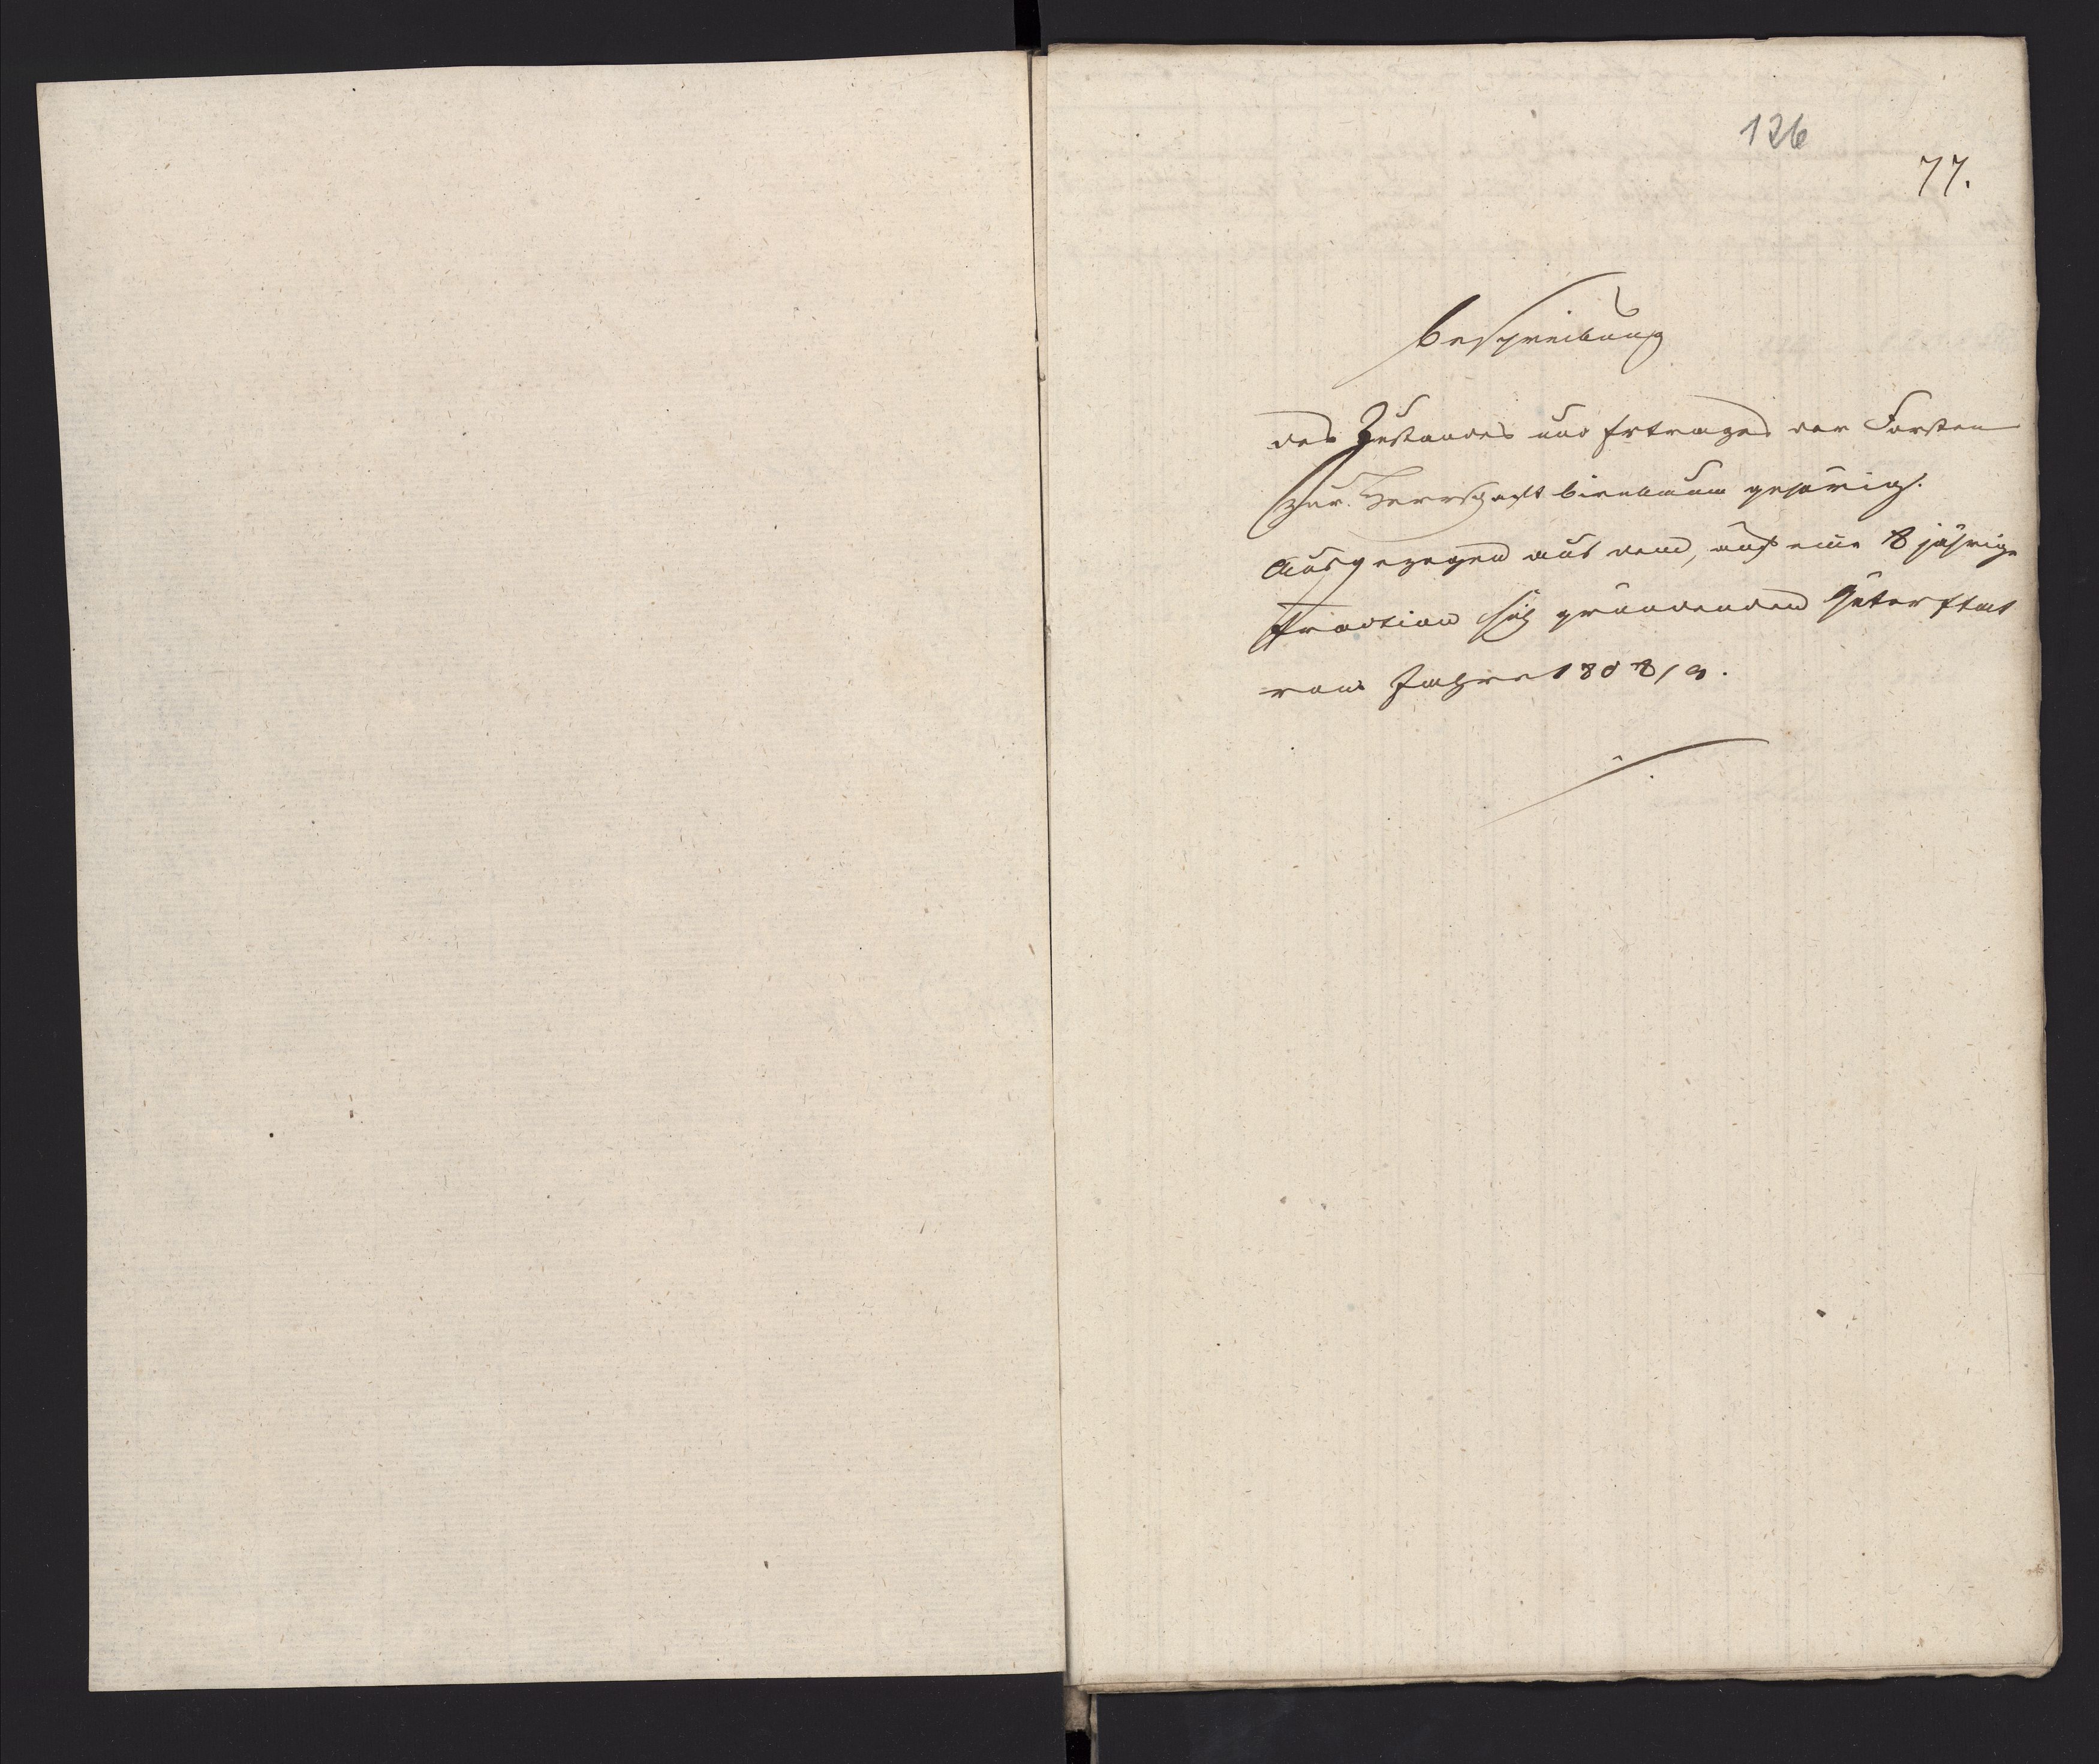 126
77.
Beschreibung
des Zustandes und Ertrages der Forsten
zur Herrschaft Birnbaum gehörig.
Ausgezogen aus dem, auf eine 8 jährige
Fraction sich gründenden Güter Etat
vom Jahre 1808/9.